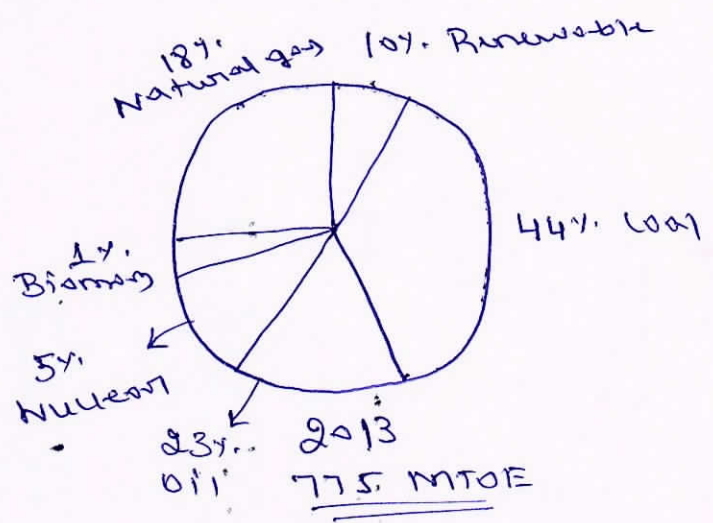 18%. Natural gas
10%. Renewable
44%. Coal
1%. Biomass
5%. Nuclear
23%. Oil
2013
775. MTOE